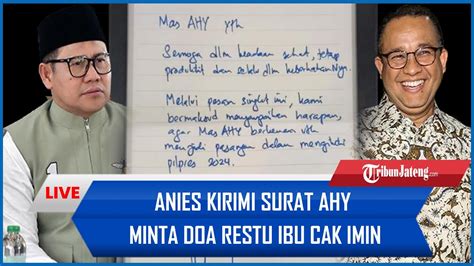 Mas AHY yth
Semoga dlm keadaan sehat, tetap
produktif dan selalu dlm keberkahanNya.
Melalui pesan singkat ini, kami
bermaksud menyampaikan harapan,
agar Mas AHY berkenan utk
menjadi pasangan dalam mengikuti
pilpres 2024.
TribunJateng.com
LIVE
ANIES KIRIMI SURAT AHY
MINTA DOA RESTU IBU CAK IMIN